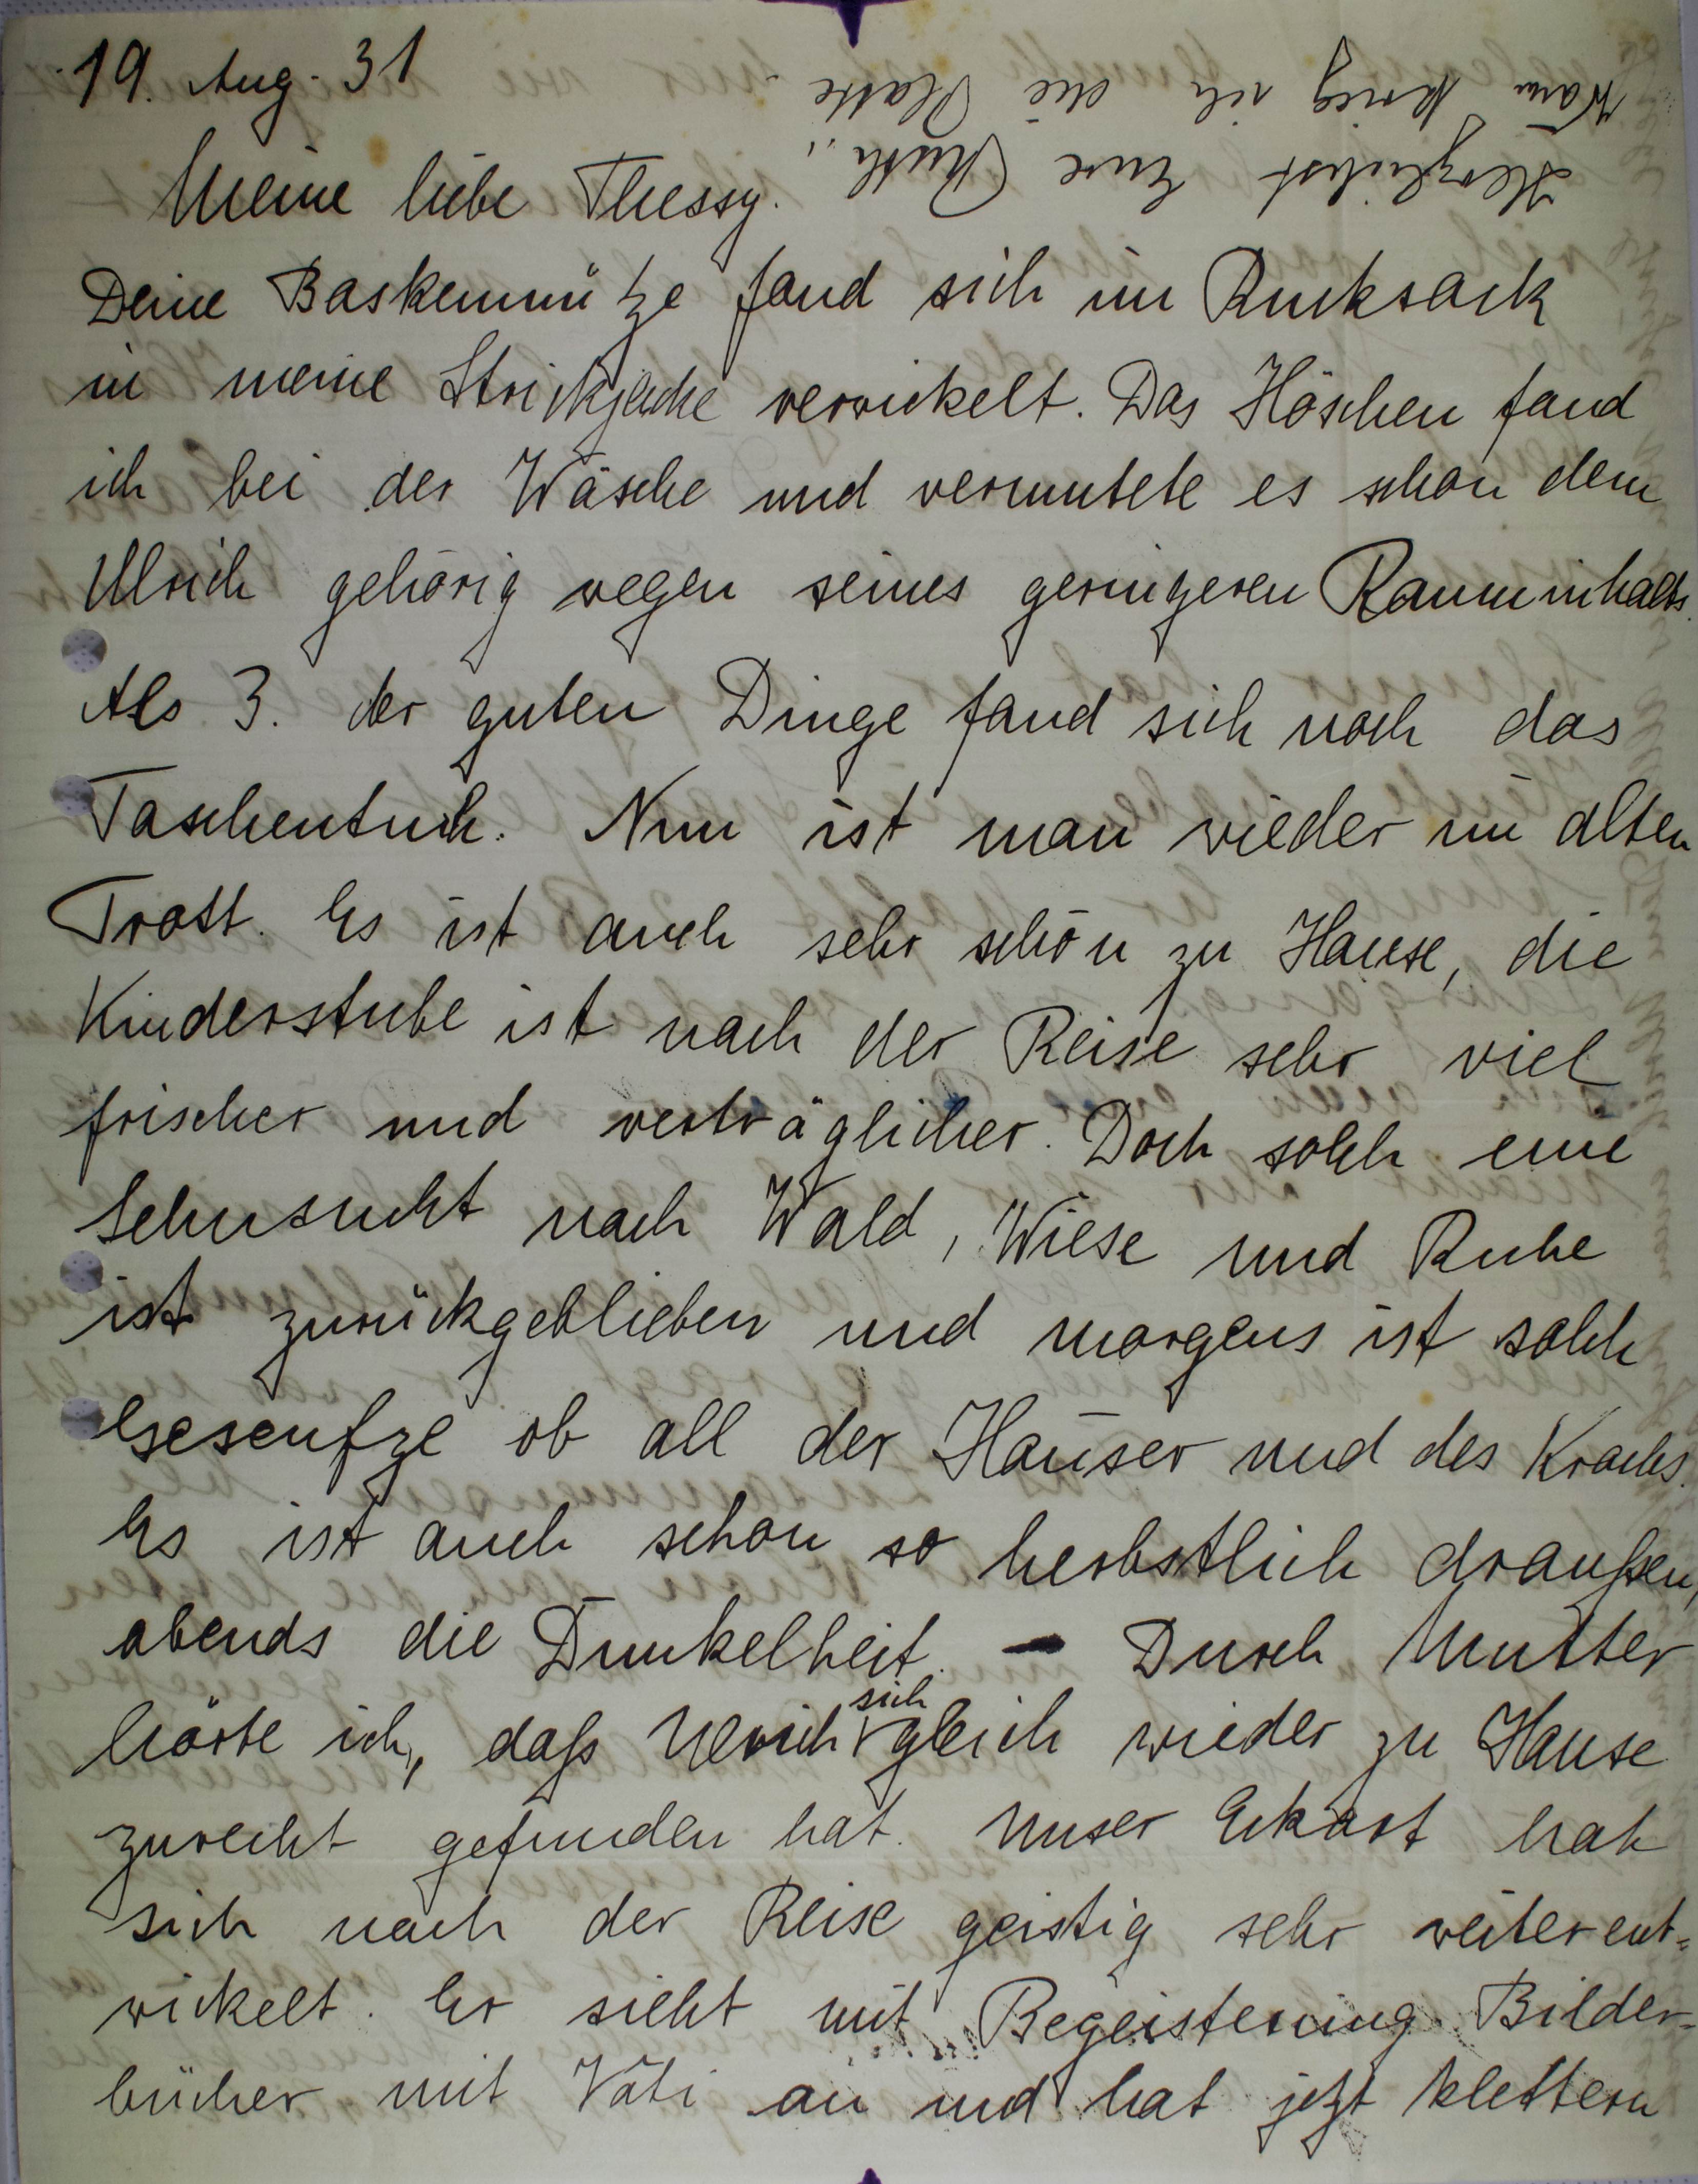 19. Aug. 31
Meine liebe Thessy.
Deine Baskenmütze fand sich im Rucksack
in meine Strickjacke verwickelt. Das Höschen fand
ich bei der Wäsche und vermutete es schon dem
Ulrich gehörig wegen seines geringeren Rauminhalts.
Als 3. der guten Dinge fand sich noch das
Taschentuch. Nun ist man wieder im alten
Trott. Es ist auch sehr schön zu Hause, die
Kinderstube ist nach der Reise sehr viel
frischer und verträglicher. Doch solch eine
Sehnsucht nach Wald, Wiese und Ruhe
ist zurückgeblieben und morgens ist solch
Geseufze ob all der Häuser und des Krachs.
Es ist auch schon so herbstlich draußen,
abends die Dunkelheit. – Durch Mutter
hörte ich, daß Ulrich sich gleich wieder zu Hause
zurecht gefunden hat. Unser Ekart hat
sich nach der Reise geistig sehr weiterent=
wickelt. Er sieht mit Begeisterung Bilder-
bücher mit Vati an und hat jetzt klettern
Herzlichst Eure Ruth.
Wann krieg ich die Platte